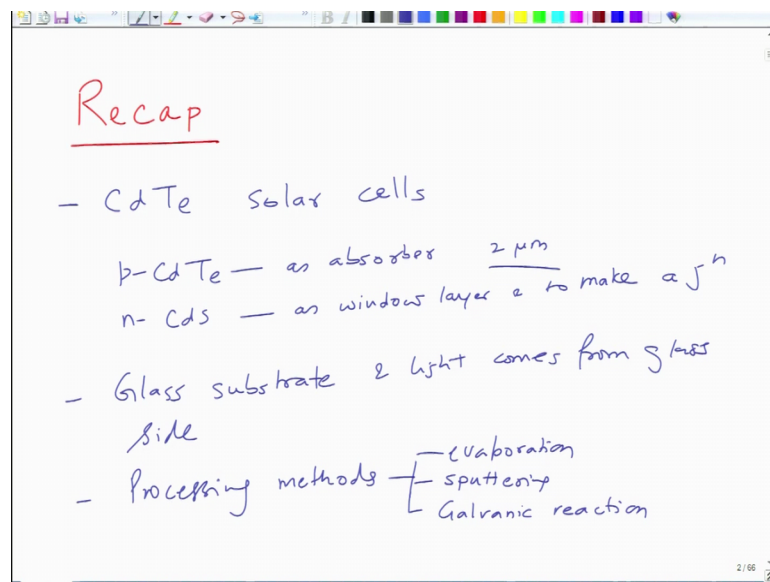 Recap
- CdTe Solar cells
p-CdTe — as absorber 2 μm
n- CdS — as window layer & to make a Jⁿ
- Glass substrate & light comes from glass
side
- Processing methods — evaporation
- sputtering
Galvanic reaction
2 / 66